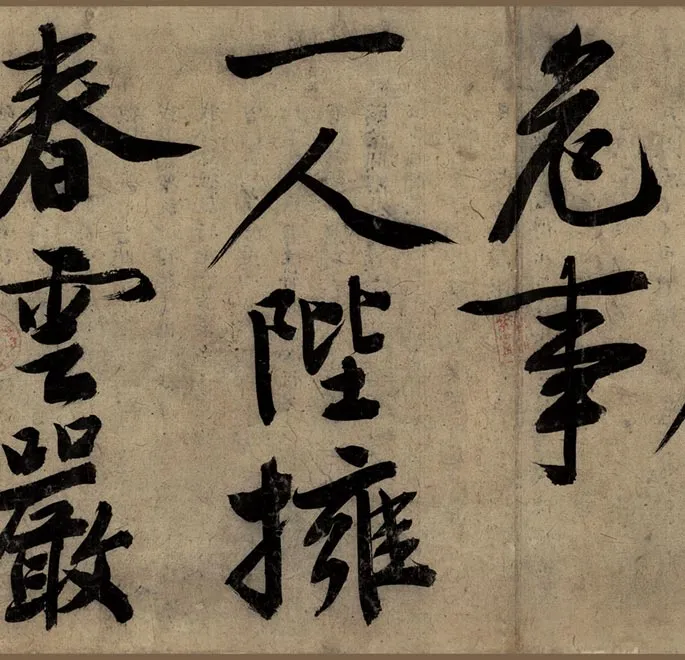 危事
一人陛擁
春雲嚴